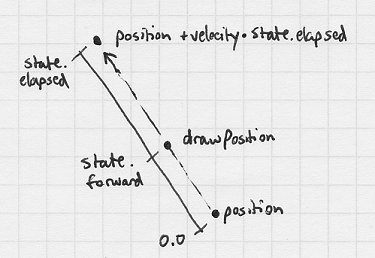 position + velocity • state.elapsed
state.
elapsed
drawPosition
state.
forward
position
0.0